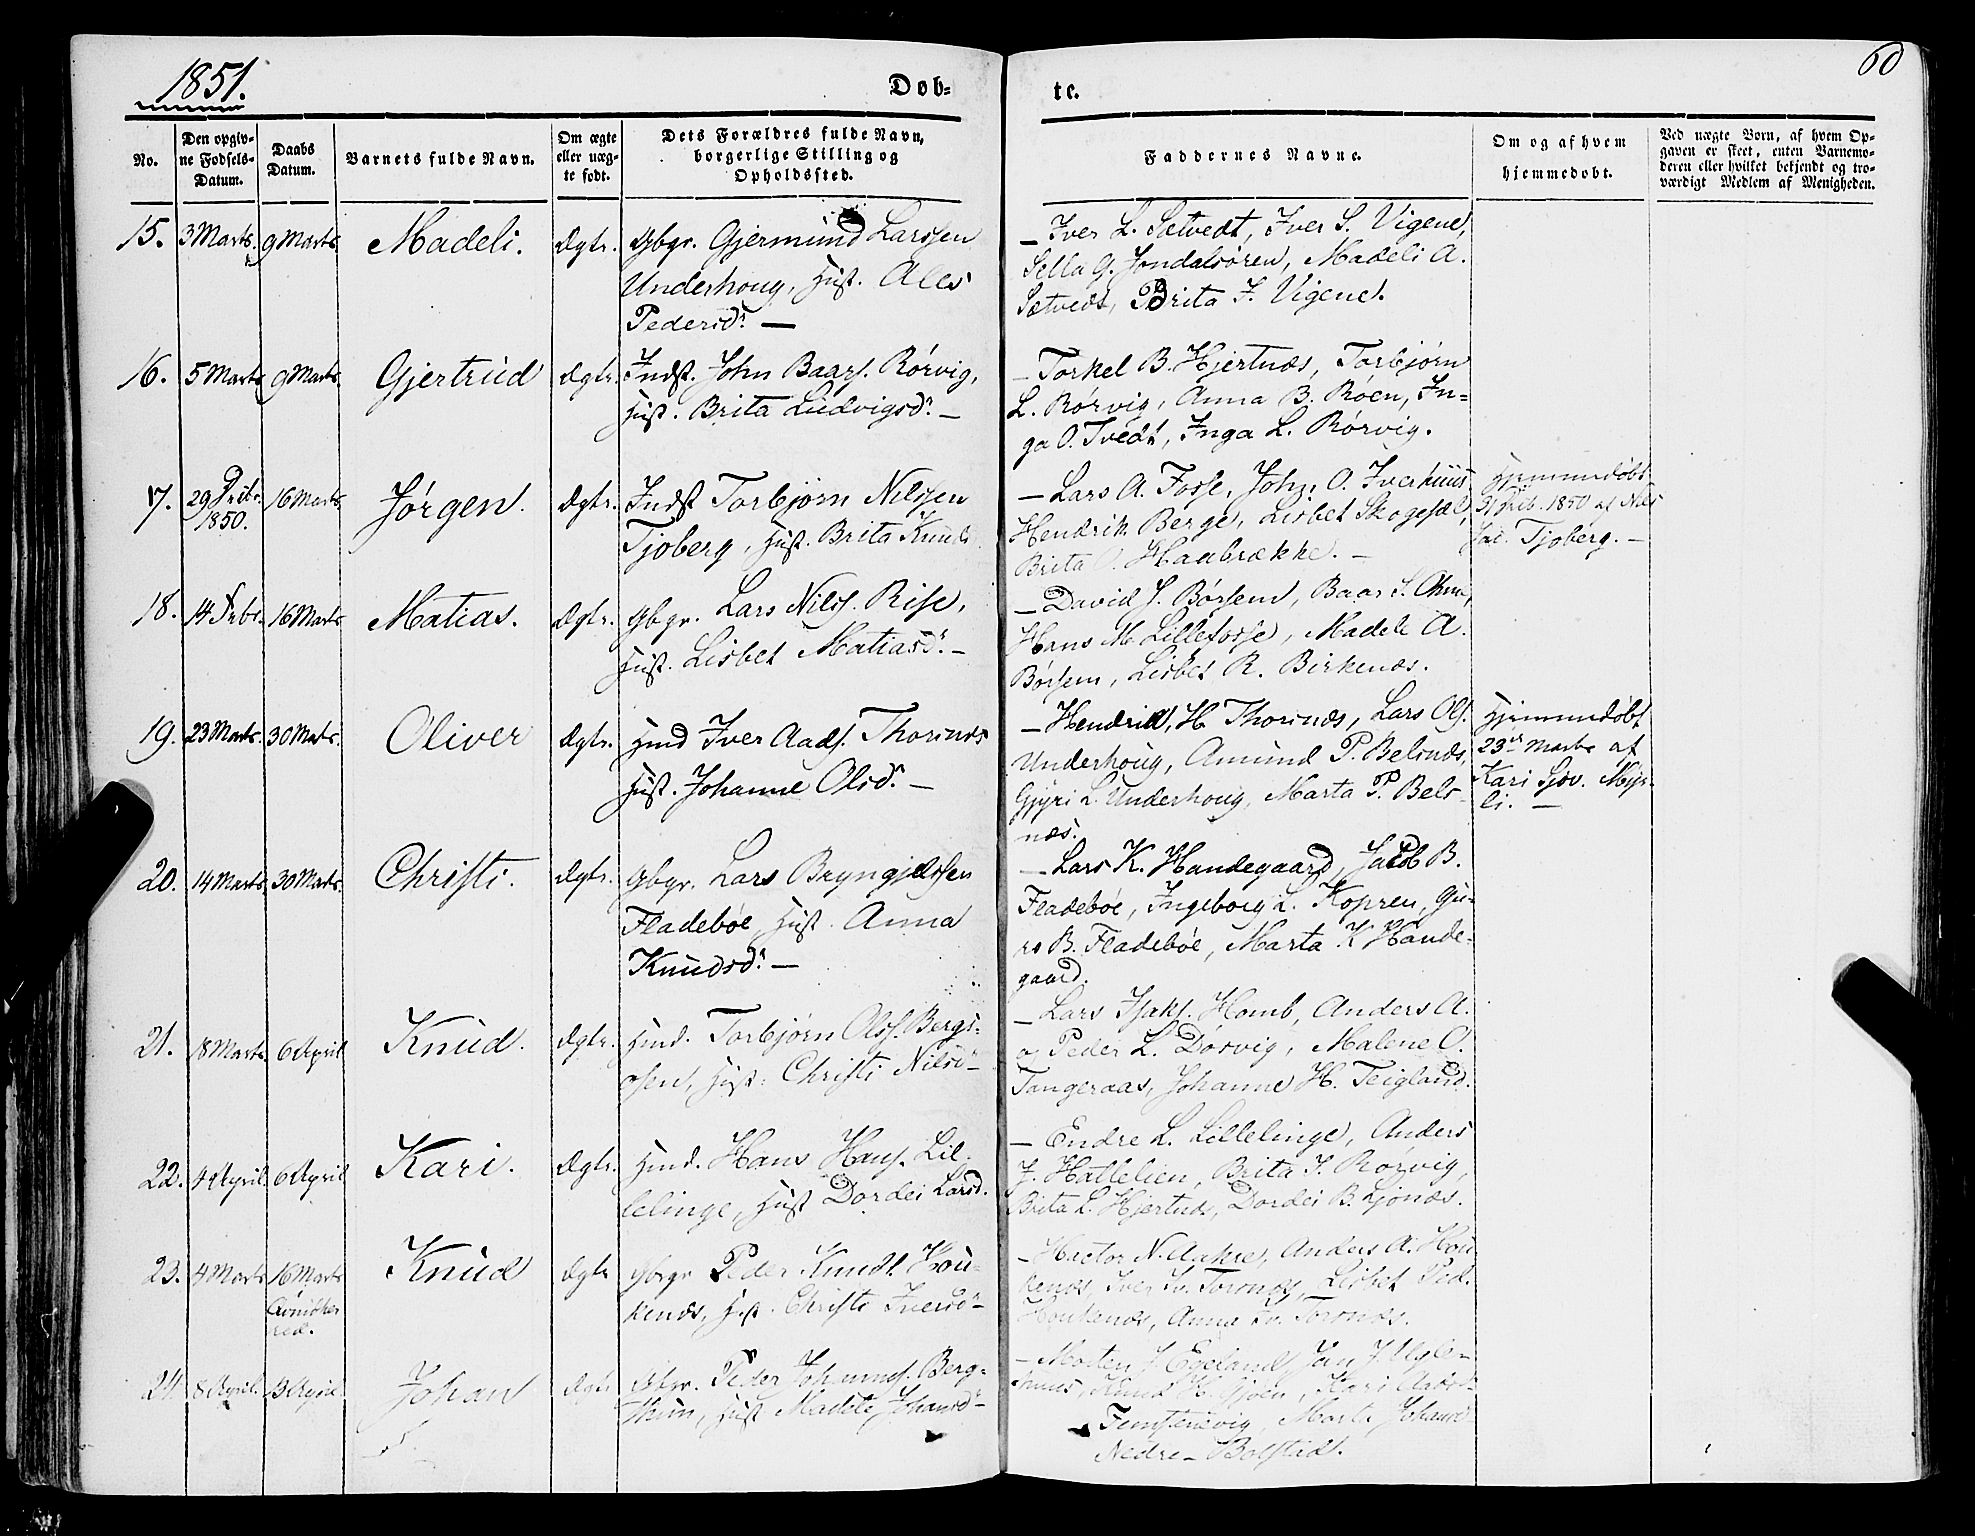 1851.
Døb-
te.
60
No.
Den opgiv-
ne Fødsels-
Datum.
Daabs
Datum.
Barnets fulde Navn.
Om ægte
eller uæg-
te født.
Dets Forældres fulde Navn,
borgerlige Stilling og
Opholdssted.
Faddernes Navne.
Om og af hvem
hjemmedøbt.
Ved uægte Børn, af hvem Op-
gaven er skeet, enten Barnemo-
deren eller hvilket bekjendt og tro-
værdigt Medlem af Menigheden.
15. 3 Marts. 9 Marts. Madeli. Ægte. Gbgr. Gjermund Larssen
Underhoug, Hust. Ales
Pedersdr. —
— Iver L. Sætvedt, Iver S. Vigene,
Sella G. Jondalsøren, Madeli A.
Sætvedt, Brita I. Vigene.
16. 5 Marts 9 Marts. Gjertrud Ægte. Indst. John Baars. Rørvig,
Hust. Brita Ludvigsdr. —
— Torkel B. Hjertnæs, Torbjørn
L. Rørvig, Anna B. Røen, In-
ga O. Tvedt, Inga L. Rørvig.
17. 29 Decbr.
1850. 16 Marts. Jørgen. Ægte. Indst Torbjørn Nilssen
Tjoberg, Hust. Brita Knuds
— Lars A. Fosse, John O. Iverhuus
Hendrik Berge, Lisbet Skogesæl,
Brita O. Haabrække. —
Hjemmedøbt
31 Decb. 1850 af Nils
Jac. Tjoberg. —
18. 14 Febr. 16 Marts Matias. Ægte. Gbgr. Lars Nilss. Rise,
Hust. Lisbet Matiasdr. —
— David J. Børsem, Baar S.
Hans M. Lillefosse, Madele A.
Børsem, Lisbet R. Birkenæs.
19. 23 Marts. 30 Marts. Oliver Ægte. Hmd Iver Aads. Thorsnæs
Hust. Johanne Olsdr. —
— Hendrik H. Thorsnæs, Lars Ols.
Underhoug, Amund P. Belsnæs,
Gjyri L. Underhoug, Marta P. Bels-
næs.
Hjemmedøbt
23de Marts af
Kari Sjov. Myr-
li. —
20. 14 Marts 30 Marts. Christi. Ægte. Gbgr. Lars Bryngjelssen
Fladebøe, Hust. Anna
Knudsdr. —
— Lars K. Handegaard, Jacob B.
Fladebøe, Ingeborg L. Kopren, Gu-
ro B. Fladebøe, Marta K Hande-
gaard.
21. 18 Marts. 6 April Knud. Ægte. Hmd. Torbjørn Olss. Bergs-
osen, Hust. Christi Nilsdr —
— Lars Isaks. Homb, Anders A.
og Peder L. Dørvig, Malene O.
Tangeraas, Johanne H. Teigland.
22. 4 April. 6 April Kari. Ægte. Hmd. Hans Hans. Lil-
lelinge, Hust Dordei Larsd.
— Endre L. Lillelinge, Anders
J. Hallelien, Brita I. Rørvig,
Brita L. Hjertnæs, Dordei B. Ljonæs.
23. 4 Marts 16 Marts Knud Ægte Gbgr Peder Knuds. Hou-
kenæs, Hust. Christi Iversdr —
— Hactor N. Aakre, Anders A. Hou-
kenæs, Iver Iv. Torsnæs, Lisbet Ped.
Houkenæs, Anna Iv. Torsnæs.
24 8 April. Johan Ægte Gbgr. Peder Johannes. Berg-
thun, Hust Madete Johansdr —
— Mosten J Egeland, Jan J Ugle-
huus, Kari
Femstenevig, Marta Johansd
Nedre-Bolstad.